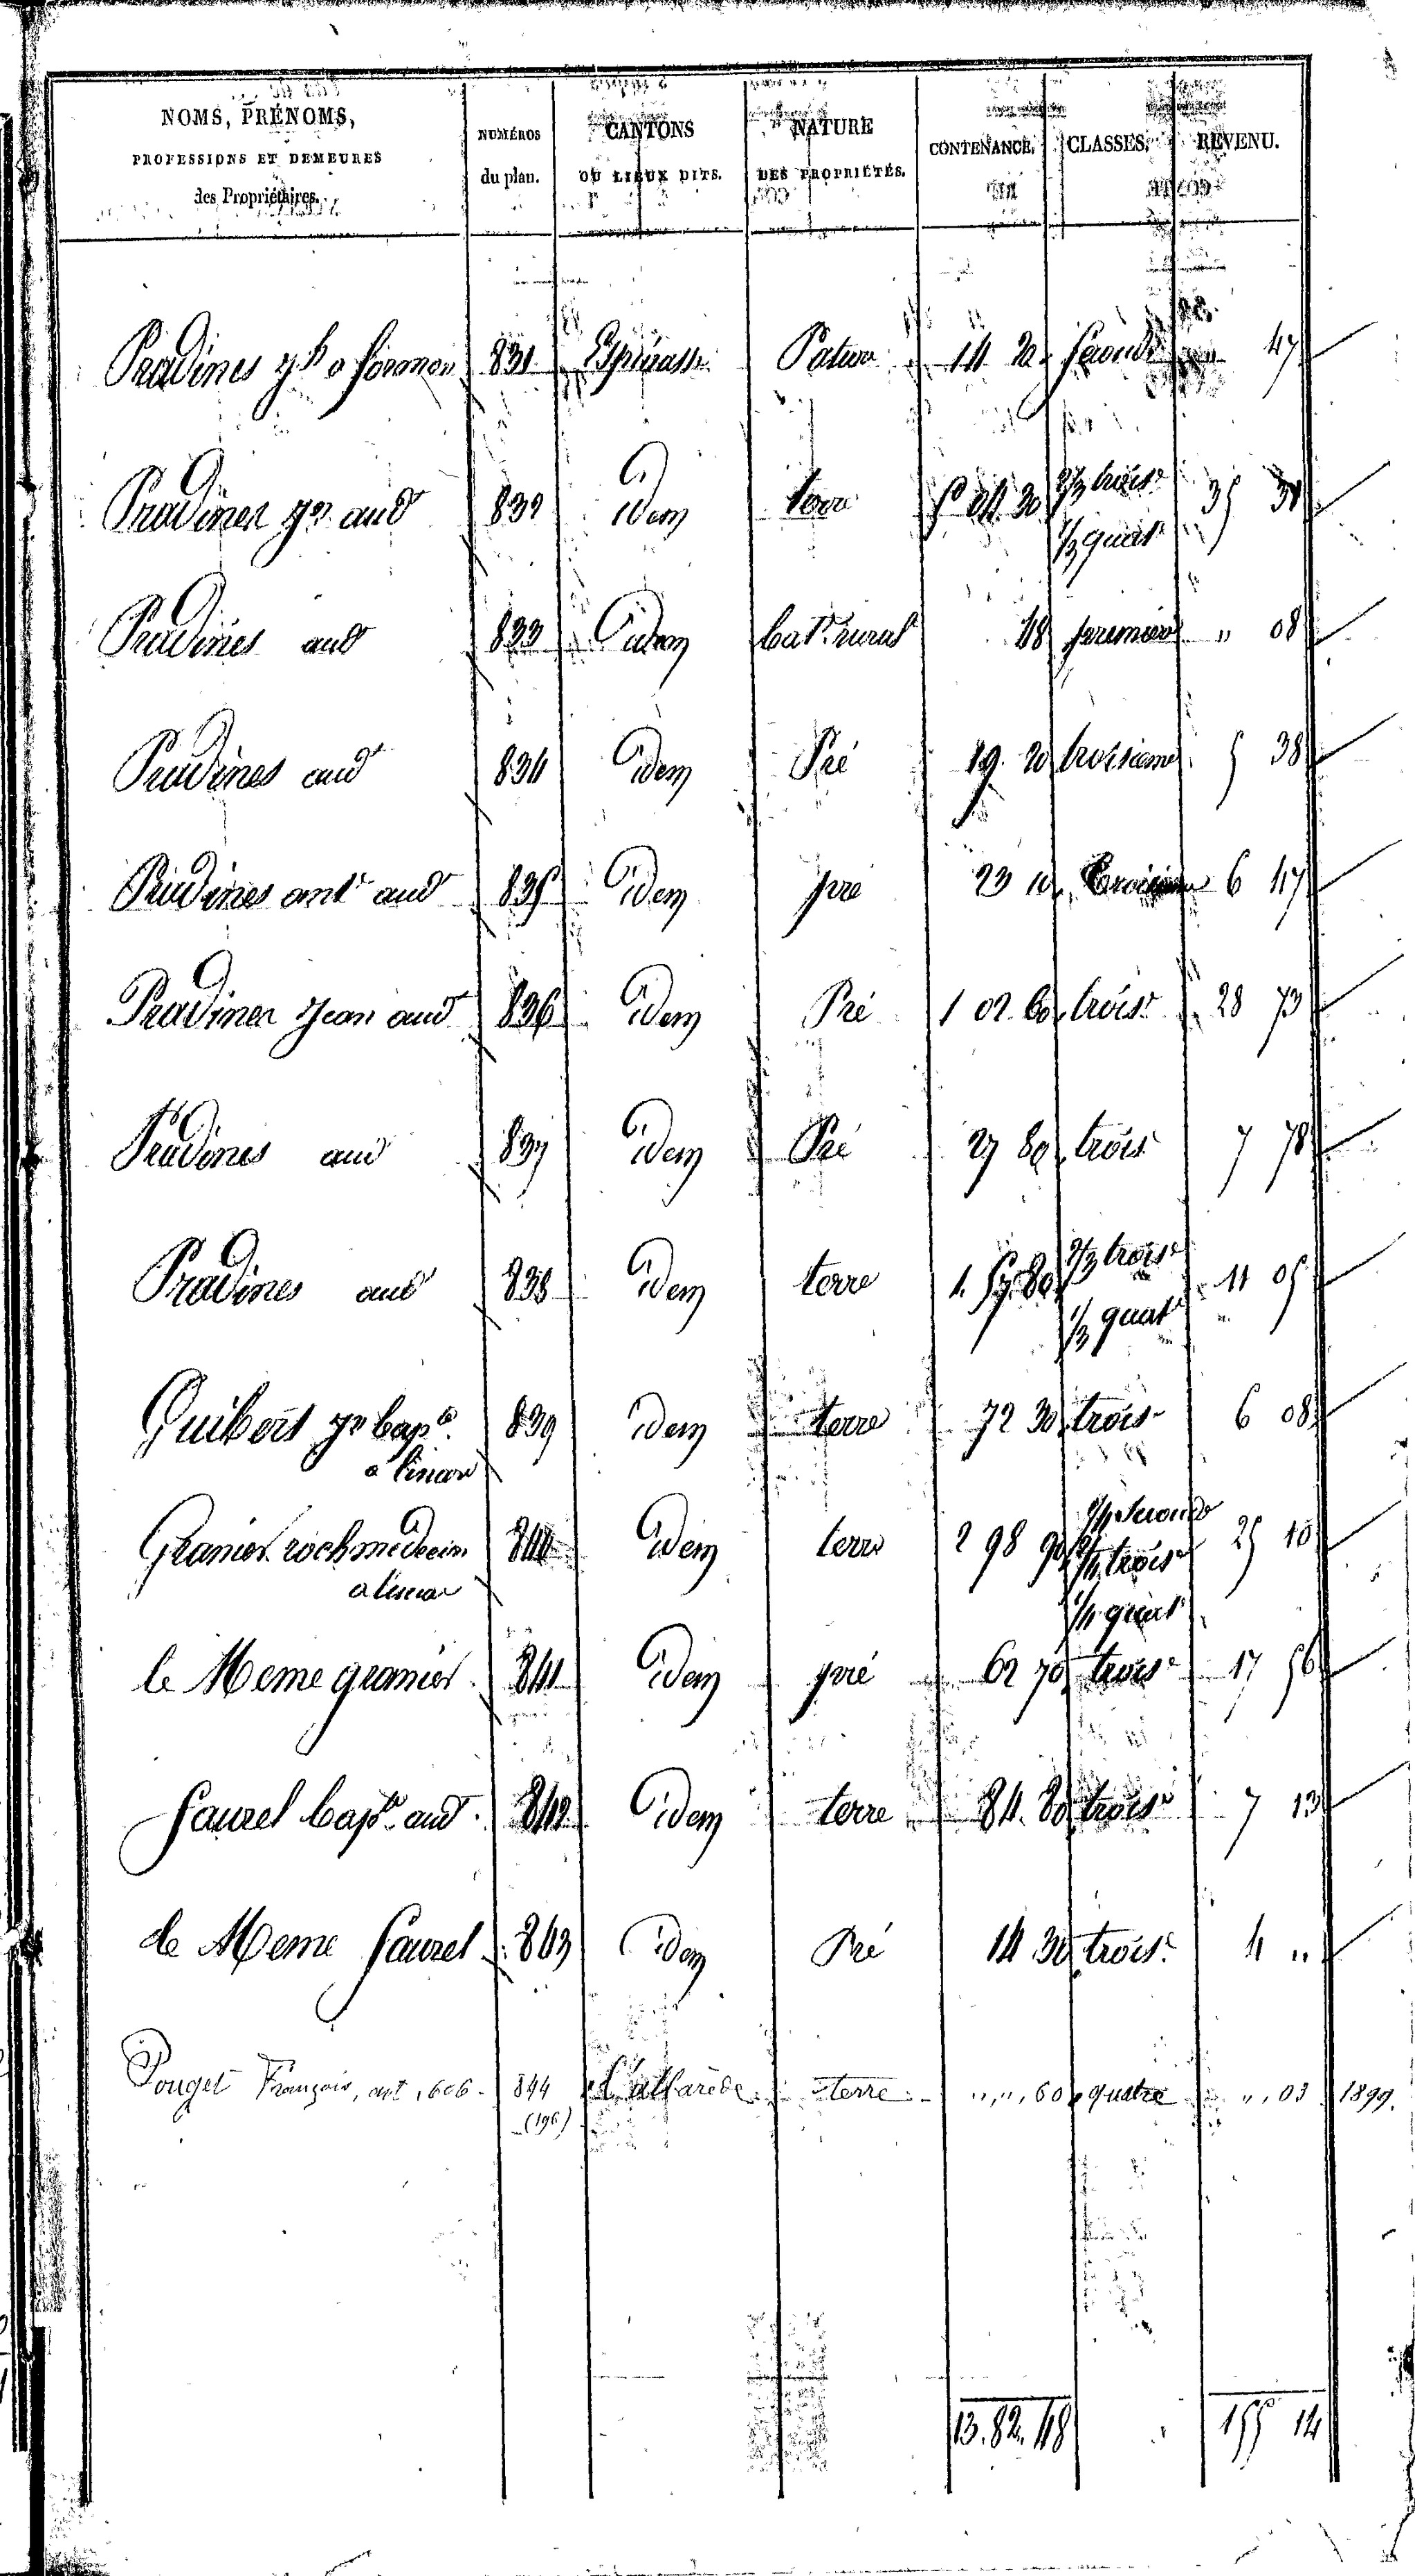 NOMS, PRÉNOMS,
PROFESSIONS ET DEMEURES
des Propriétaires.
NUMÉROS
du plan.
CANTONS
OU LIEUX DITS.
NATURE
DES PROPRIÉTÉS.
CONTENANCE.
CLASSES.
REVENU.
Pradines 831 Espinasse Pature 14 20 seconde 47
2/3 trois.e
Pradines jn aud 832 idem terre 5 04 30 35 31
1/3 quat.e
Pradines aud 833 idem bat.t rural 48 premiere " 08
Pradines aud 834 idem Pré 19. 20 troisieme 5 38
Pradines ant.e aud 835 idem pré 23 10 troisieme 6 47
Pradines Jean aud 836 idem Pré 1 02 60 trois.e 28 73
Pradines aud 837 idem Pré 27 80 trois 7 78
2/3 trois.e
Pradines aud 838 idem terre 1. 57. 80 11 05
1/3 quat.e
Guibert jn bap.te 839 idem terre 72 30 trois.e 6 08
1/4 seconde
Granier roch medecin 840 idem terre 2 98 90 2/4 trois.e 25 10
1/4 quat.e
le Meme granier 841 idem pré 62 70 trois.e 17 56
Faurel bap.te aud. 842 idem terre 84. 80 trois.e 7 13
le Meme Faurel 843 idem Pré 14 30 trois.e 4 "
Pouget François, art. 606. 844 terre " , " , 60 quatre " , 03 1899.
(196)
13. 82. 48 155 14